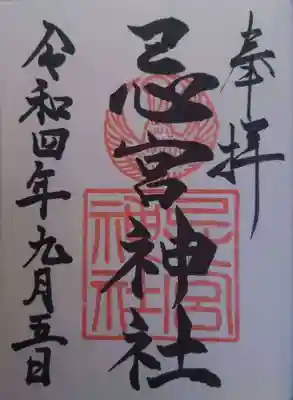 奉拝
忌宮神社
忌宮神社
令和四年九月五日